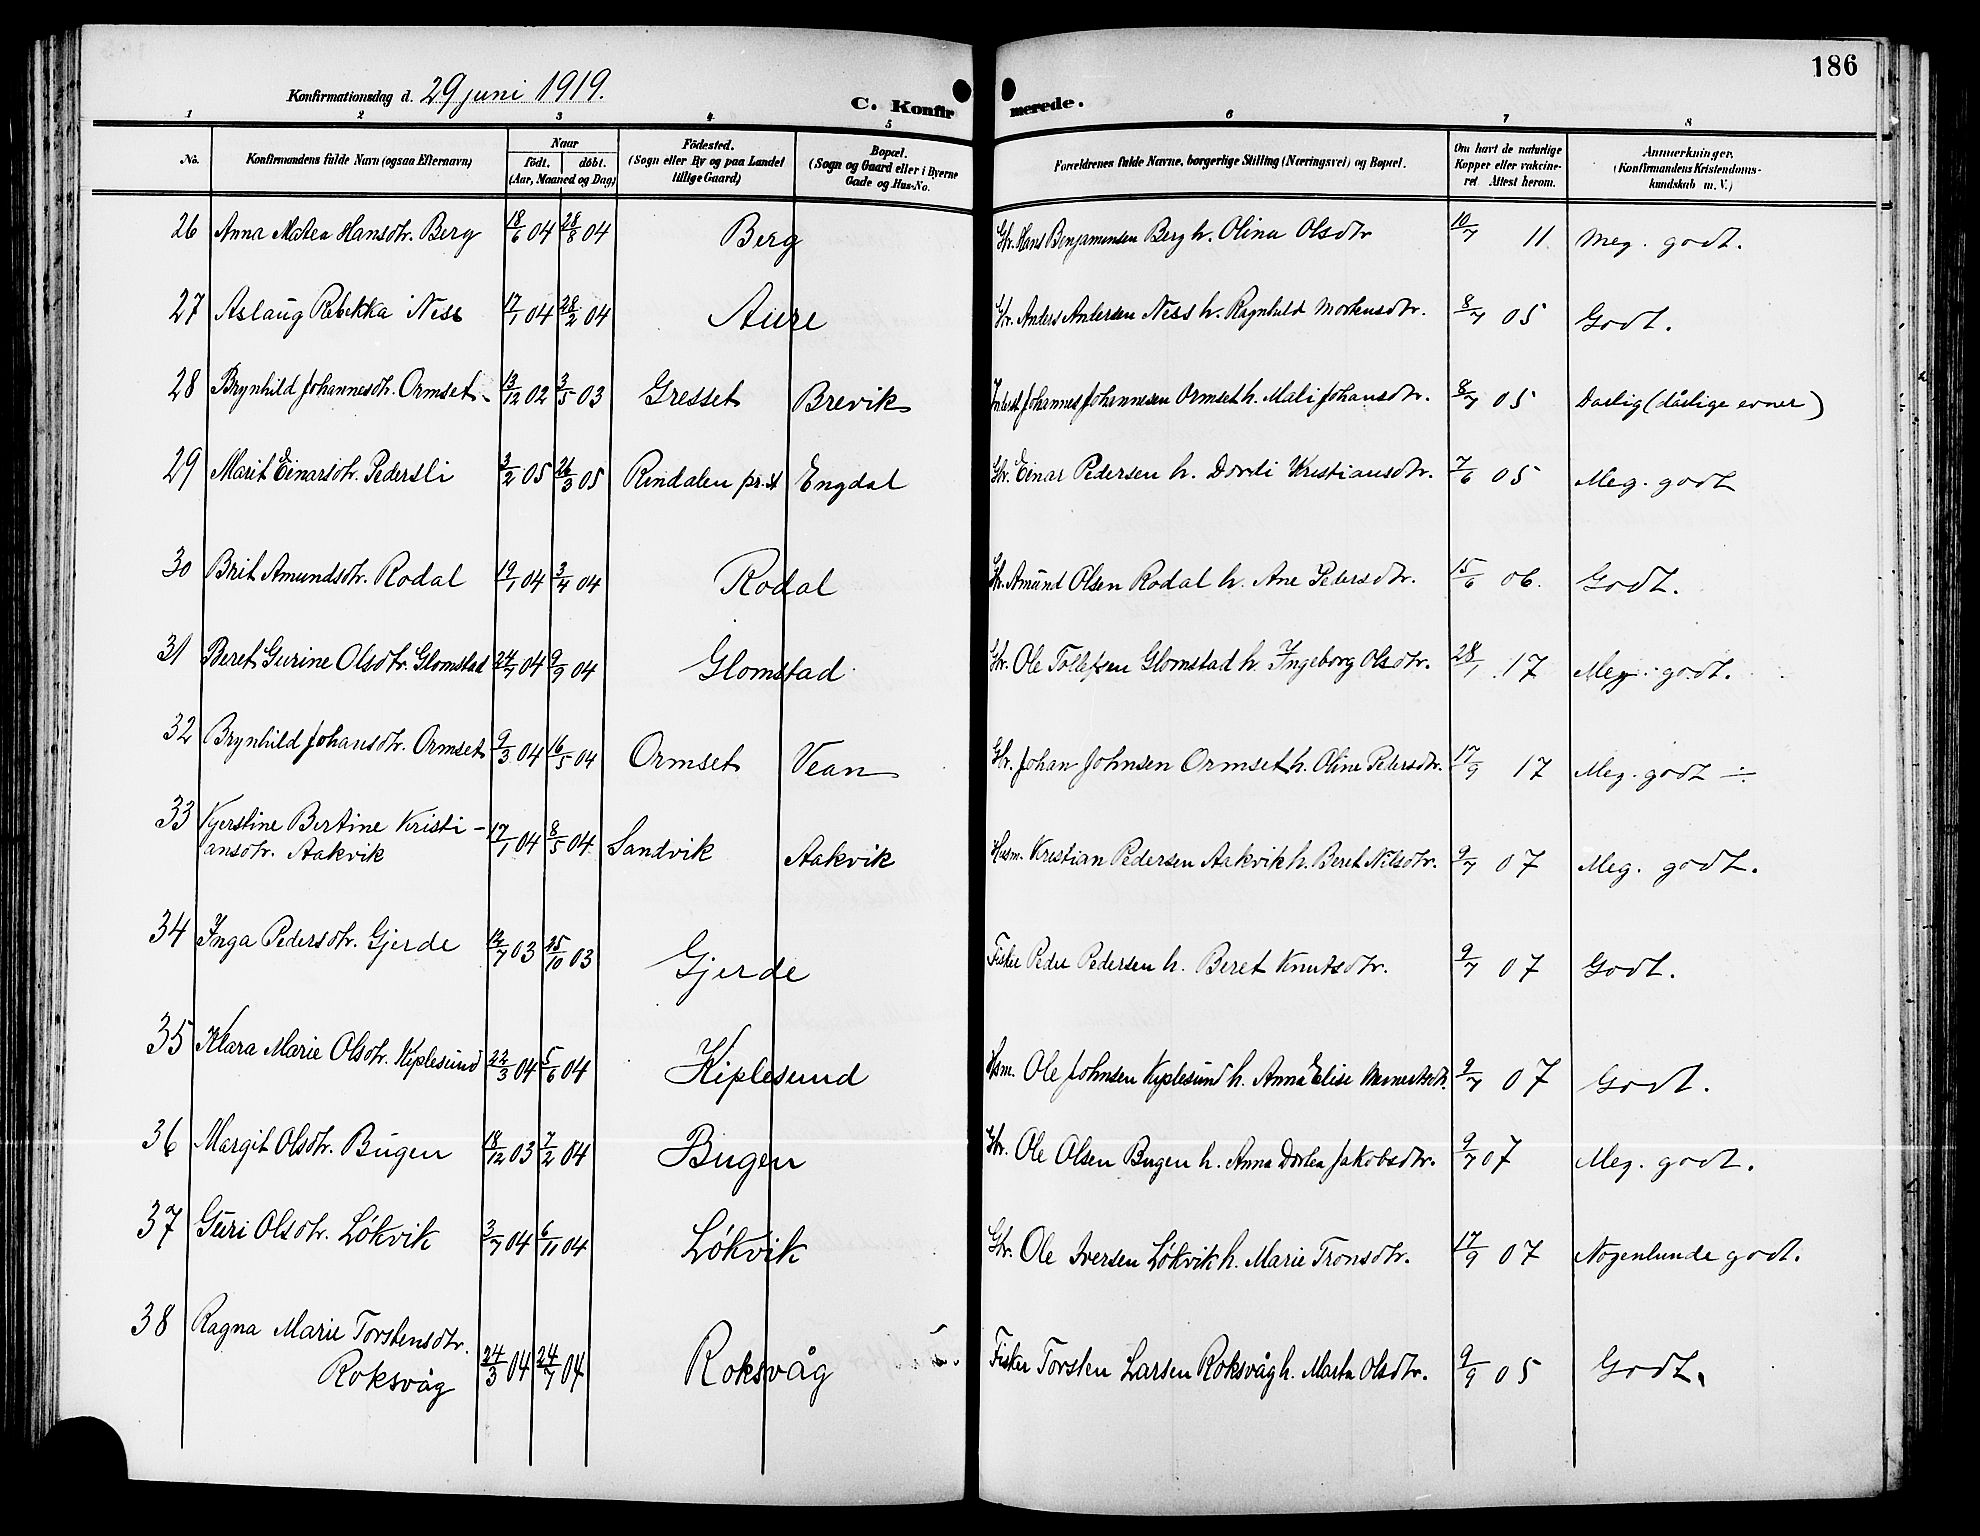 186
Konfirmationsdag d. 29 juni 1919.
C. Konfirmerede.
1 2 3 4 5 6 7 8
No. Konfirmandens fulde Navn (ogsaa Efternavn) Naar født. døbt. (Aar, Maaned og Dag) Fødested. (Sogn eller By og paa Landet tillige Gaard) Bopæl. (Sogn og Gaard eller i Byerne Gade og Hus-No. Forældrenes fulde Navne, borgerlige Stilling (Næringsvei) og Bopæl. Om havt de naturlige Kopper eller vakcineret Attest herom. Anmærkninger. (Konfirmandens Kristendomskundskab m. V.)
26 Anna Matea Hansdtr. Berg 18/6 04 28/8 04 Berg Gbr. Hans Benjaminsen Berg h. Olina Olsdtr 10/7 11 Meg. godt.
27 Aslaug Rebekka Ness 17/1 04 28/2 04 Aure Gbr. Anders Andersen Ness h. Ragnhild Mortensdtr. 8/7 05 Godt.
28 Brynhild Johannesdtr. Ormset 13/12 02 3/5 03 Gresset Brevik Inderst Johannes Johannesen Ormset h. Mali Johansdtr. 8/7 05 Darlig (dårlige evner)
29 Marit Einarsdtr. Pedersli 3/2 05 26/3 05 Rindalen pr.st Engdal Gbr. Einar Pedersen h. Dordi Kristiansdtr. 7/6 05 Meg. godt
30 Brit Amundsdtr. Rodal 19/1 04 3/4 04 Rodal Gbr. Amund Olsen Rodal h. Ane Petersdtr. 15/6 06. Godt.
31 Beret Gurine Olsdtr. Glomstad 24/7 04 9/9 04 Glomstad Gbr. Ole Tollefsen Glomstad h. Ingeborg Olsdtr. 28/1 17 Meg. godt.
32 Brynhild Johansdtr. Ormset 9/3 04 16/5 04 Ormset Vean Gbr. Johan Johnsen Ormset h. Oline Petersdtr. 17/9 17 Meg. godt ÷
33 Kjerstine Bertine Kristi-
ansdtr. Aakvik 17/1 04 8/5 04 Sandvik Aakvik Husm. Kristian Pedersen Aakvik h. Beret Nilsdtr. 9/7 07 Meg. godt.
34 Inga Pedersdtr. Gjerde 12/7 03 25/10 03 Gjerde Fisker Peder Pedersen h. Beret Knutsdtr. 9/7 07 Godt.
35 Klara Marie Olsdtr. Kiplesund 22/3 04 5/6 04 Kiplesund Hsm. Ole Johnsen Kiplesund h. Anna Elise 9/7 07 Godt.
36 Margit Olsdtr. Bugen 18/12 03 7/2 04 Bugen Gbr. Ole Olsen Bugen h. Anna Dortea Jakobsdtr. 9/7 07 Meg. godt.
37 Guri Olsdtr. Løkvik 3/7 04 6/11 04 Løkvik Gbr. Ole Iversen Løkvik h. Marie Tronsdtr. 17/9 07 Nogenlunde godt.
38 Ragna Marie Torstensdtr.
Roksvåg 24/3 04 24/7 04 Roksvåg Fisker Torsten Larsen Roksvåg h. Marta Olsdtr. 9/9 05 Godt.